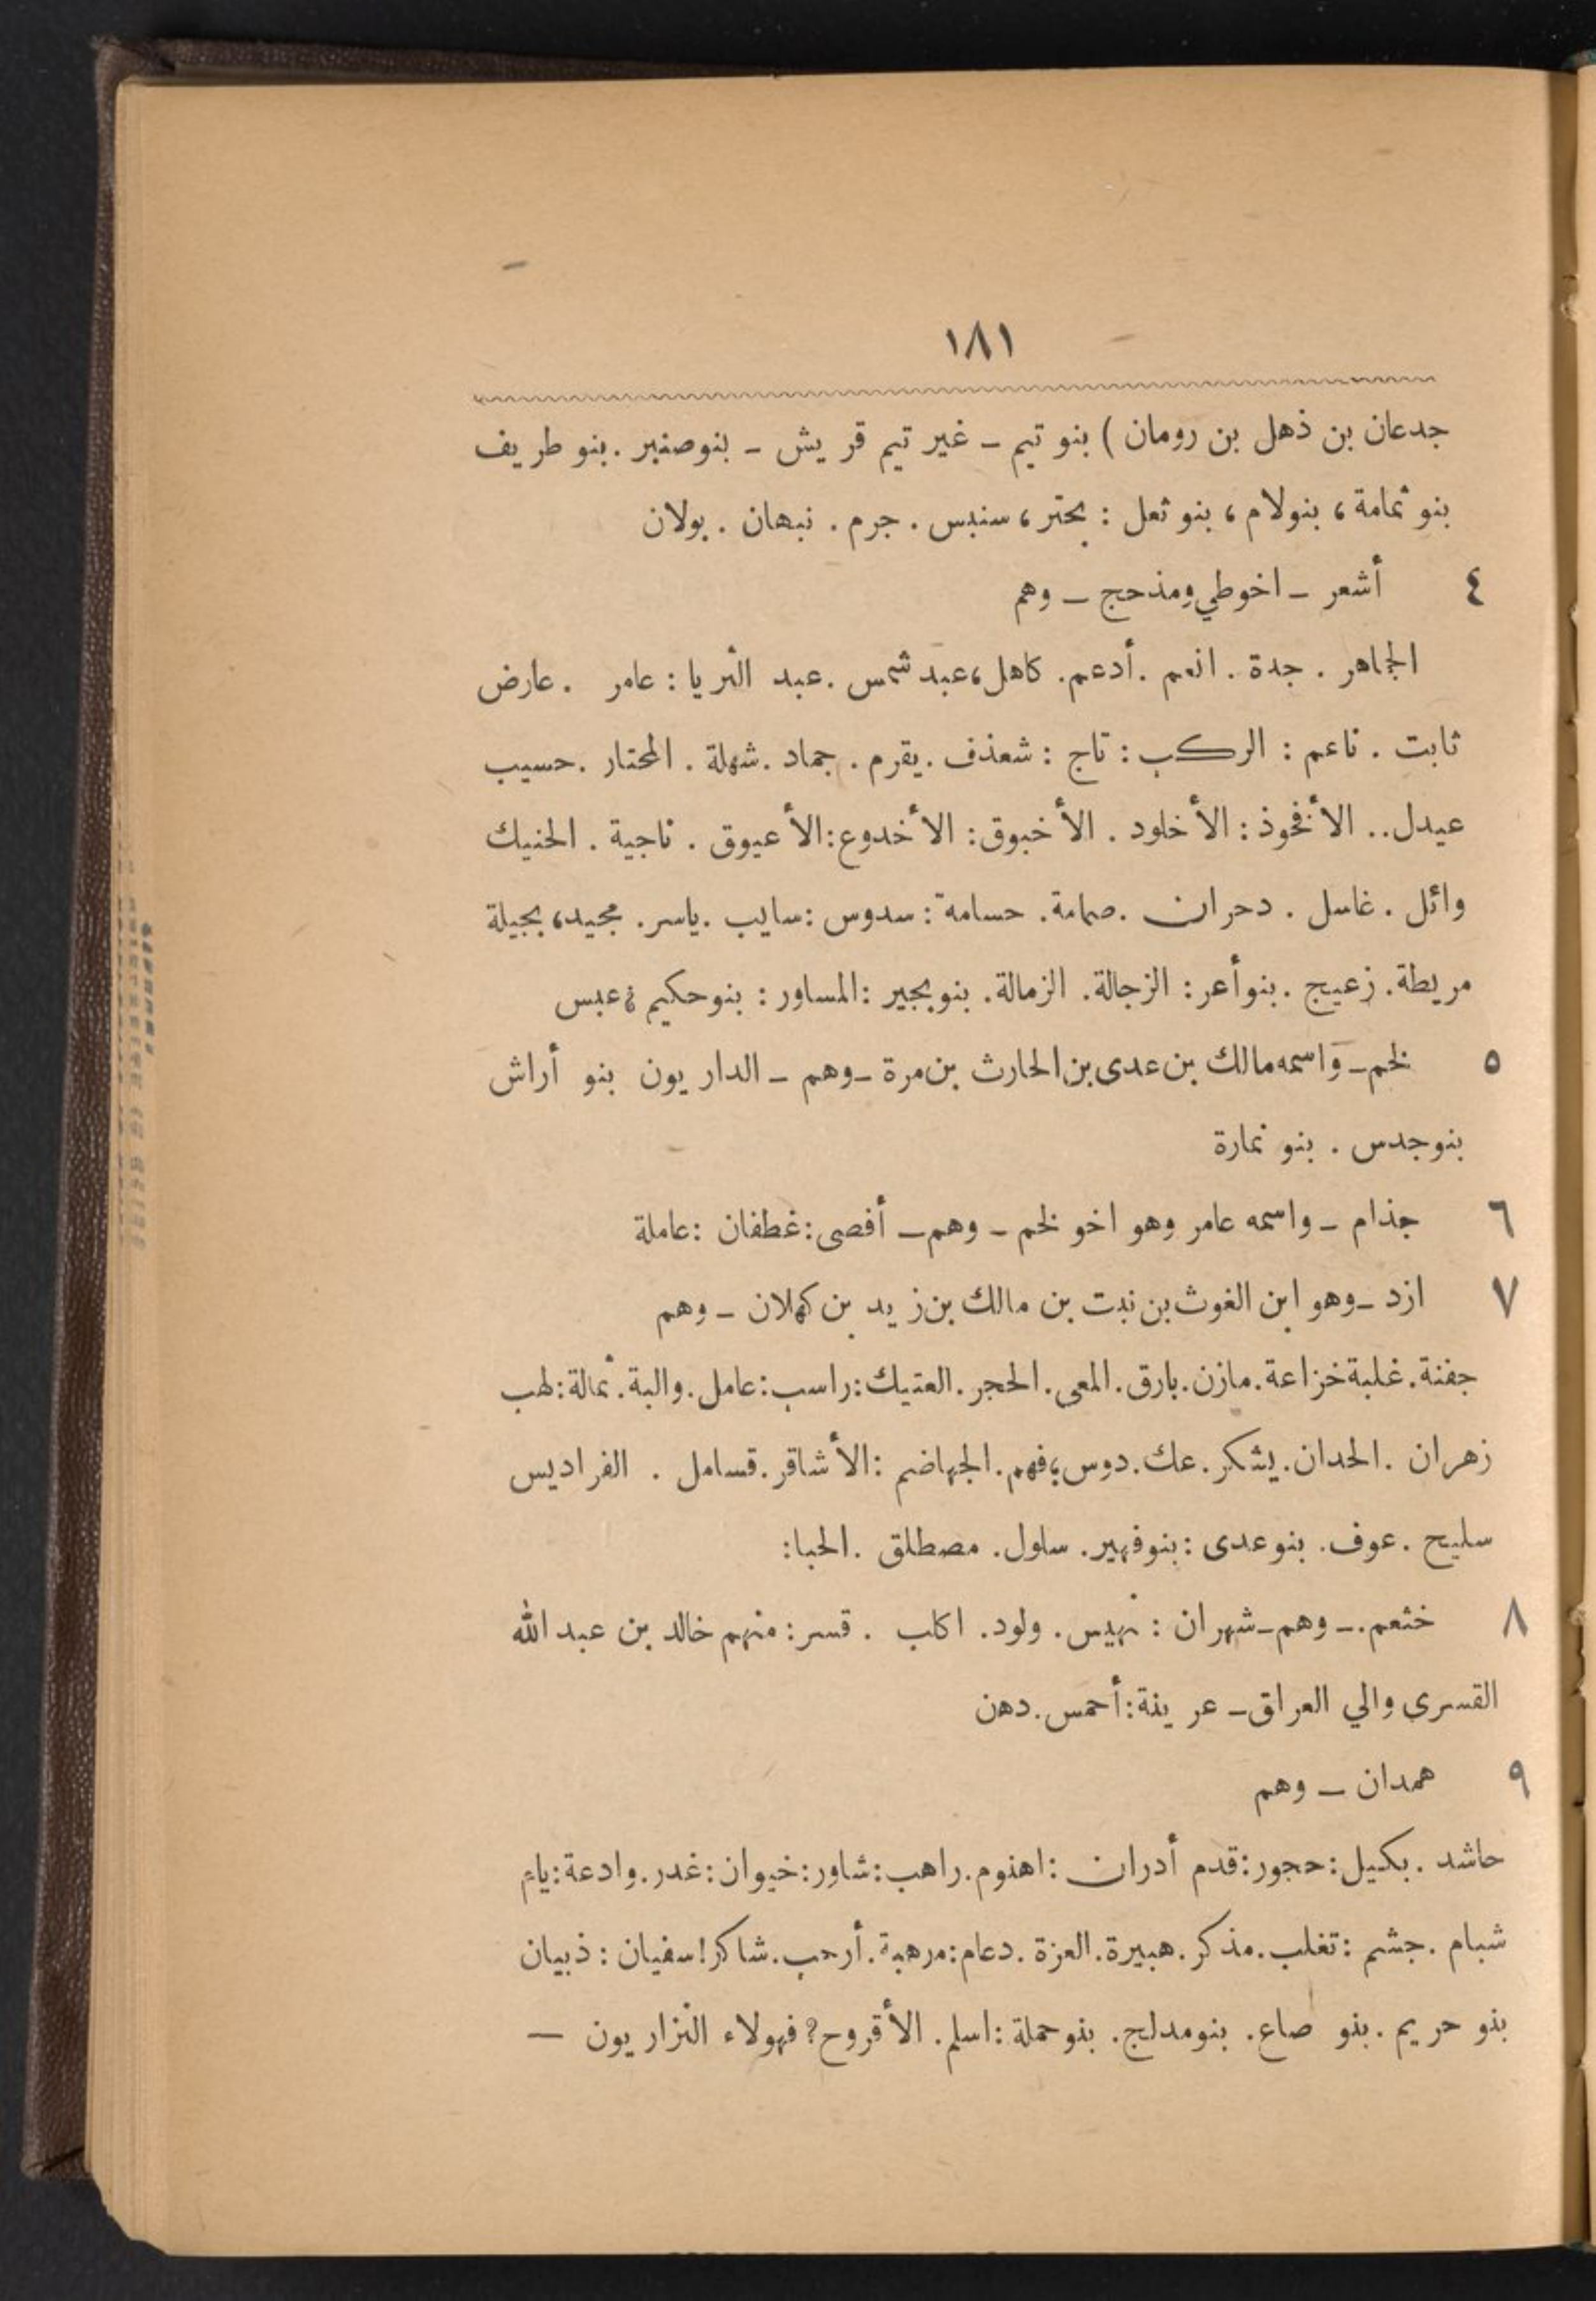 ١٨١
جدعان بن ذهل بن رومان ) بنو تيم - غير تيم قريش - بنو صنبر . بنو طريف
بنو ثمامة ، بنو لام ، بنو ثعل : بحتر ، سنبس . جرم . نبهان . بولان
٤ أشعر - اخوطي ومذحج - وهم
الجماهر . جدة . انعم . أدعم . كاهل ، عبد شمس . عبد الثريا : عامر . عارض
ثابت . ناعم : الركب : تاج : شعذف . يقرم . جماد . شهلة . المختار . حسيب
عيدل .. الأنخوذ : الأخلود . الأخبوق : الأخدوع : الأعيوق . ناجية . الحنيك
وائل . غاسل . دحران . صمامة . حسامة : سدوس : سايب . ياسر . مجيد ، بجيلة
مريطة . زعيج . بنو أعر : الزجالة . الزمالة . بنو بجير : المساور : بنو حكيم ؛ عبس
٥ لخم - واسمه مالك بن عدى بن الحارث بن مرة - وهم - الداريون بنو أراش
بنو جدس . بنو نمارة
٦ جذام - واسمه عامر وهو اخو لخم - وهم - أفصى : غطفان : عاملة
٧ ازد - وهو ابن الغوث بن نبت بن مالك بن زيد بن كهلان - وهم
جفنة . غلبة خزاعة . مازن . بارق . المعى . الحجر . العتيك : راسب : عامل . والبة . ثمالة : لهب
زهران . الحدان . يشكر . عك . دوس ؛ فهم . الجهاضم : الأشاقر . قسامل . الفراديس
سليح . عوف . بنو عدى : بنو فهير . سلول . مصطلق . الحبا :
٨ خثعم . - وهم - شهران : نهيس . ولود . اكلب . قسر : منهم خالد بن عبد الله
القسرى والي العراق - عرينة : أحمس . دهن
٩ همدان - وهم
حاشد . بكيل : حجور : قدم أدران : اهنوم . راهب : شاور : خيوان : غدر . وادعة : يام
شبام . جشم : تغلب . مذكر . هبيرة . العزة . دعام : مرهبة . أرحب . شاكر ! سفيان : ذبيان
بنو حريم . بنو صاع . بنو مدلج . بنو حملة : اسلم . الأقروح ? فهولاء النزاريون —